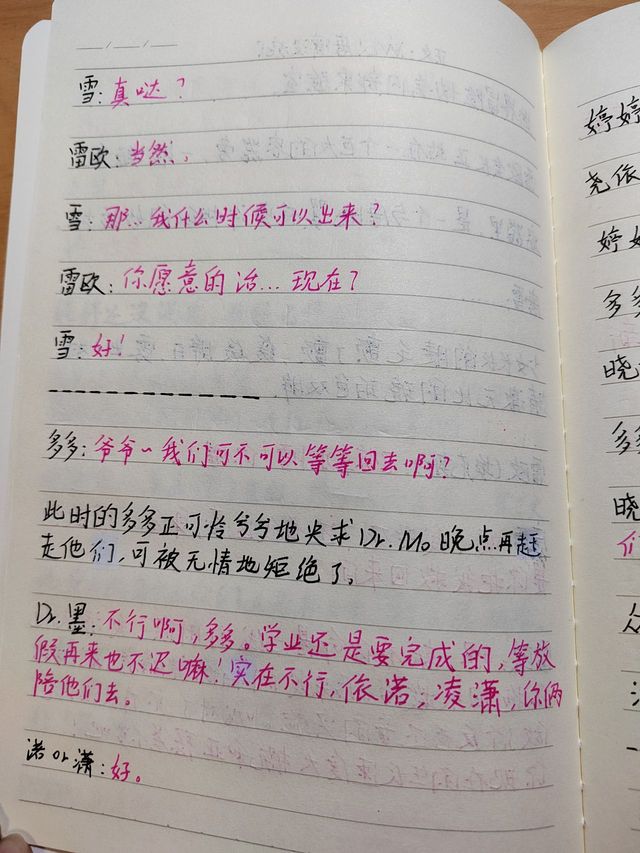 雪:真哒?
雷欧:当然,
雪:那...我什么时候可以出来?
雷欧:你愿意的话...现在?
雪:好!
多多:爷爷~我们可不可以等等回去啊?
此时的多多正可怜兮兮地央求Dr.Mo晚点再赶
走他们,可被无情地矩绝了。
Dr.墨:不行啊,多多。学业还是要完成的,等放
假再来也不迟嘛!实在不行,依诺,凌潇,你俩
陪他们去。
诺&潇:好。
婷婷
尧依
婷婷
多多
晓
多多
晓
们
众